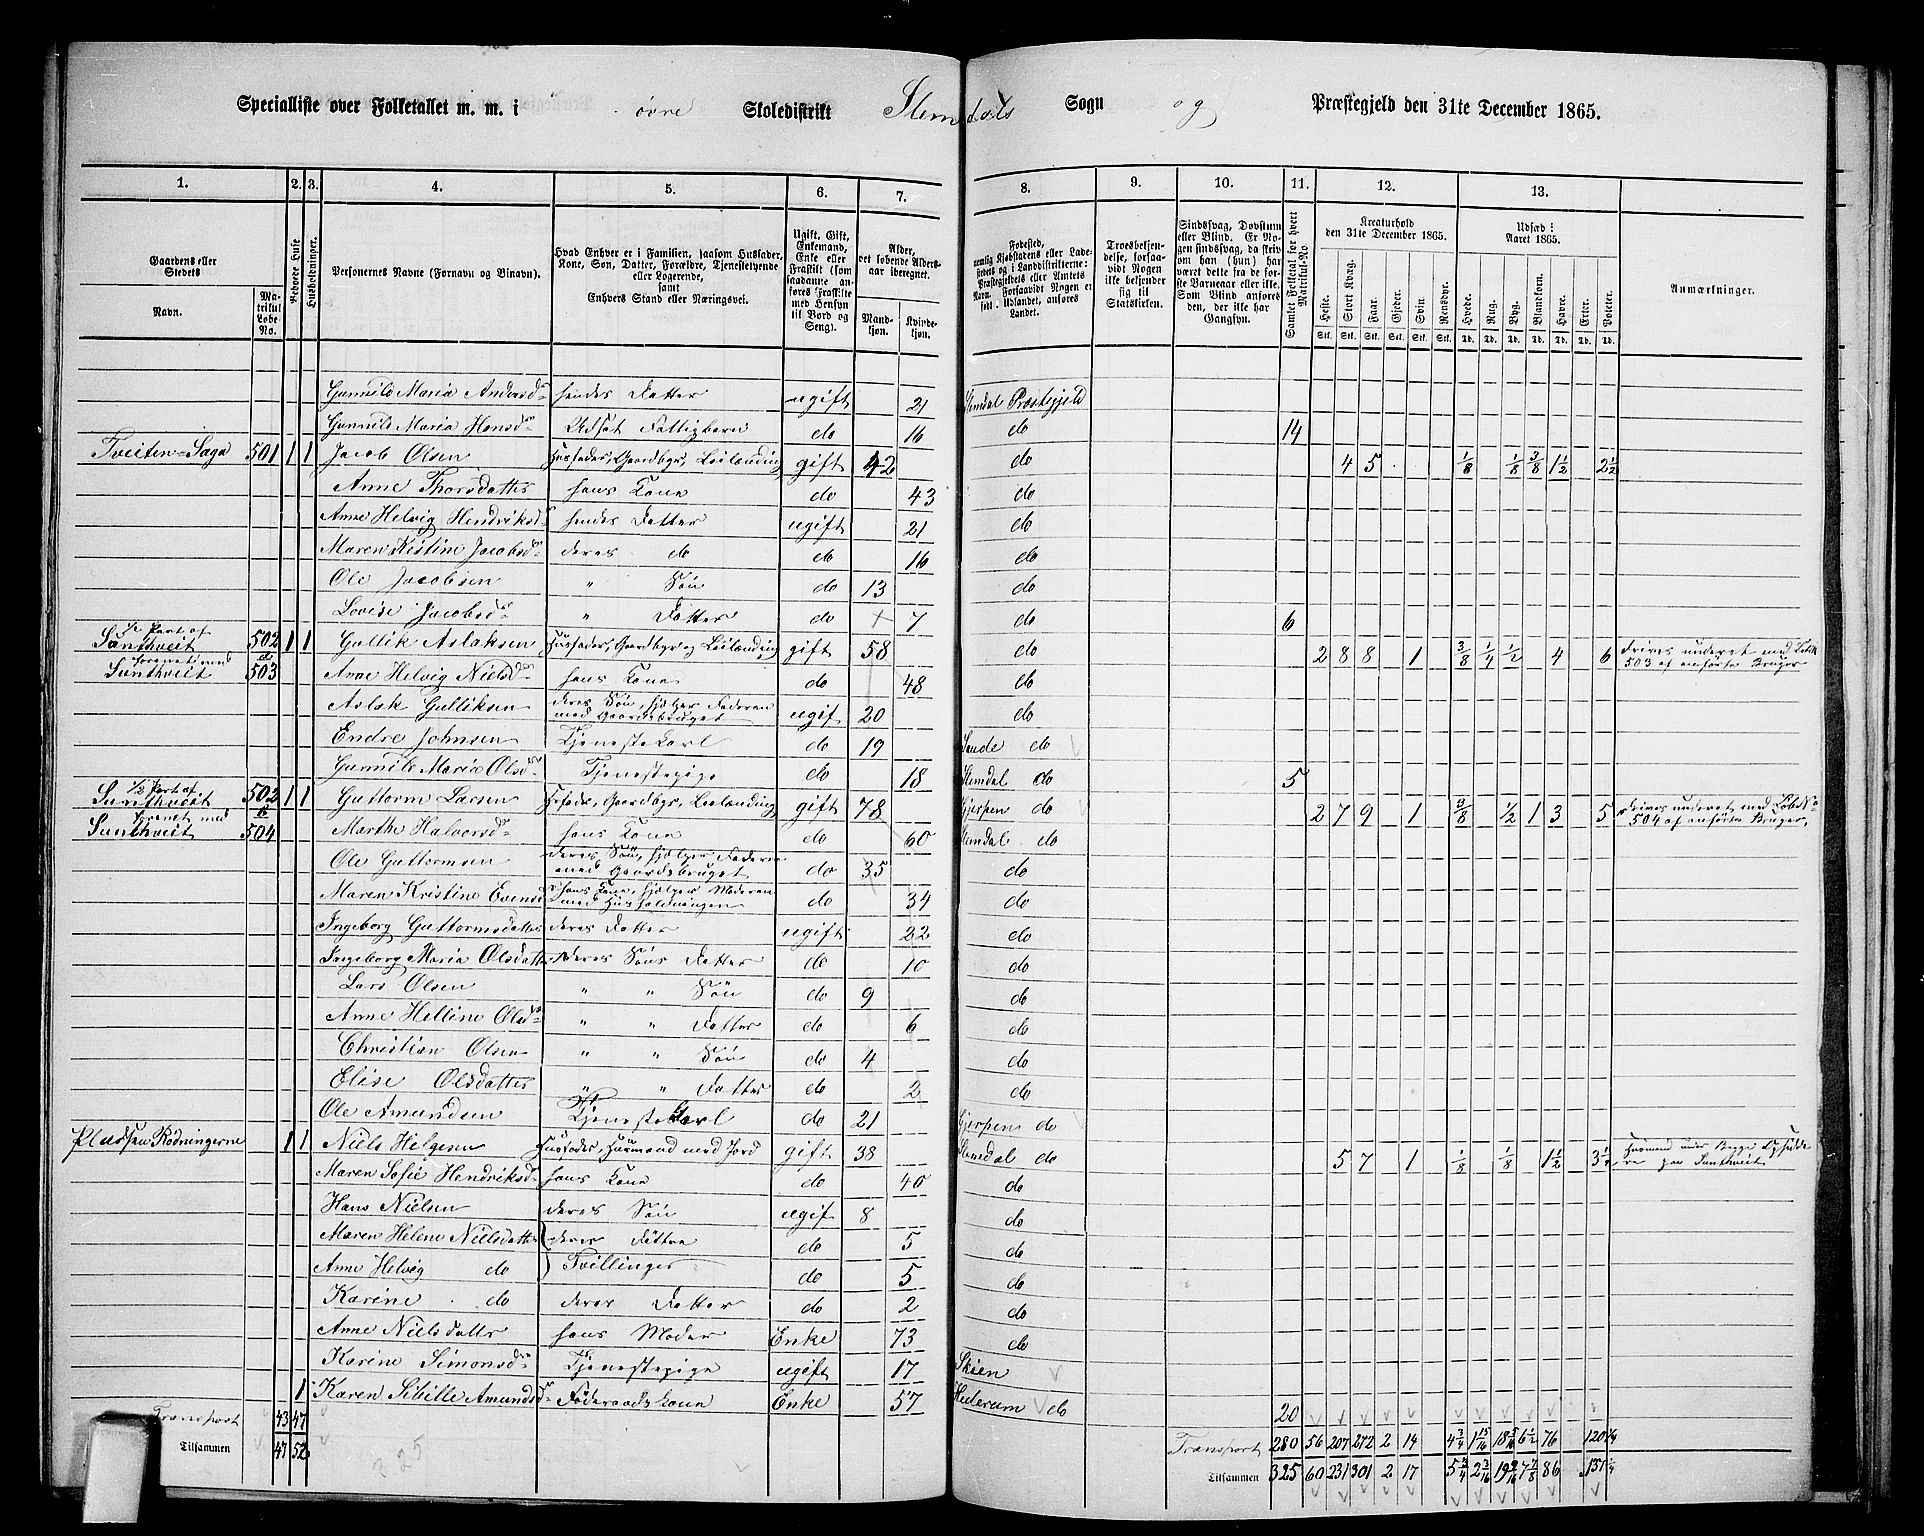 Specialliste over Folketallet m. m. i øvre Skoledistrikt Slemdals Sogn og Præstegjeld den 31te December 1865.
1. 2. 3. 4. 5. 6. 7. 8. 9. 10. 11. 12. 13.
Gaardens eller Stedets
Navn.
Matrikul Løbe No.
Beboede Huse
Husholdninger.
Personernes Navne (Fornavn og Binavn).
Hvad Enhver er i Familien, saasom Husfader, Kone, Søn, Datter, Forældre, Tjenestetyende eller Logerende, samt Enhvers Stand eller Næringsvei.
Ugift, Gift, Enkemand, Enke eller Fraskilt (som saadanne anføres Fraskilte med Hensyn til Bord og Seng).
Alder, det løbende Aldersaar iberegnet.
Mandkjøn. Kvindekjøn.
Fødested, nemlig Kjøbstadens eller Ladestedets og i Landdistrikterne: Præstegjeldets eller Amtets Navn. Forsaavidt Nogen er født i Udlandet, anføres Landet.
Troesbekjendelse, forsaavidt Nogen ikke bekjender sig til Statskirken.
Sindssvag, Døvstum eller Blind. Er Nogen sindssvag, da skrives om han (hun) har været dette fra de første Barneaar eller ikke. Som Blind anføres den, der ikke har Gangsyn.
Samlet Folketal for hvert Matrikul-No.
Kreaturhold den 31te December 1865.
Heste. Stort Kvæg. Faar. Gjeder. Svin. Rensdyr.
Udsæd i Aaret 1865.
Hvede. Rug. Byg. Blandkorn. Havre. Erter. Poteter.
Anmærkninger.
Gunnild Maria Andersd. hendes Datter ugift 21 Slemdal Præstegjeld
Gunnild Maria Hansd. Udsat Fattigbarn do 16 do 14
Tveiten-Saga 501 1 1 Jacob Olsen Husfader, Gaardbgr, Leilænding gift 42 do 4 5 1/8 1/8 3/8 1 1/2 2 1/2
Anne Thorsdatter hans Kone do 43 do
Anne Helvig Hendriksd. hendes Datter ugift 21 do
Maren Kistine Jacobsd. deres do do 16 do
Ole Jacobsen " Søn do 13 do
Lovise Jacobsd. " Datter do 7 do 6
1/2 Part af Sunthveit 502 a 1 1 Gullik Aslaksen Husfader, Gaardbgr og Leilænding gift 58 do 2 8 8 1 3/8 1/4 1/2 4 6 Drives underet med LøbN 503 af anførte Bruger
forenet med Sunthveit 503 Anne Helvig Nielsd. hans Kone do 48 do
Aslak Gulliksen deres Søn, hjelper Faderen med Gaardsbruget ugif 20 do
Endre Johnsen Tjenestekarl do 19 Sande do
Gunnild Maria Olsd. Tjenestepige do 18 Slemdal do 5
1/2 Part af Sunthveit 502 b 1 1 Guttorm Larsen Hfader, Gaardbgr, Leilænding gift 78 Gjerpen do 2 7 9 1 3/8 1/2 1 3 5 Drives underet med LøbeNo 504 af anførte Bruger,
forenet med Sunthveit 504 Marthe Halvorsd. hans Kone do 60 Slemdal do
Ole Guttormsen deres Søn, hjelper Faderen med Gaardsbruget do 35 do
Maren Kristine Evensd. hans Kone, hjelper Moderen med Husholdningen do 34 do
Ingeborg Guttormsdatter deres Datter ugift 22 do
Ingeborg Maria Olsdatter deres Søns Datter do 10 do
Lars Olsen " " Søn do 9 do
Anne Helline Olsd. " " Datter do 6 do
Christian Olsen " " Søn do 4 do
Elise Olsdatter " " Datter do 2 do
Ole Amundsen Tjenestekarl do 21 Gjerpen do
Pladsen Rødningerne 1 1 Niels Helgesen Husfader, Husmand med Jord gift 38 Slemdal do 5 7 1 1/8 1/8 1 1/2 3 1/4 Husmand under Begge Opsiddere paa Sunthveit
Maren Sofie Hendriksd. hans Kone do 40 do
Hans Nielsen deres Søn ugif 8 do
Maren Helene Nielsdatter deres Døttre do 5 do
Anne Helvig do Tvillinger do 5 do
Karine do deres Datter do 2 do
Anne Nielsdatter hans Moder Enke 73 do
Karine Simonsd. Tjenestepige ugift 17 Skien
1 Karen Sibille Amundsd. Føderaadskone Enke 57 Hiterum do 20
Transport 43 47 Transport 280 56 207 272 2 14 4 3/4 1 15/16 18 5/16 6 1/2 76 120 1/4
Tilsammen 47 52 Tilsammen 325 60 231 301 2 17 5 3/4 2 3/16 19 9/16 7 7/8 86 137 1/4
325